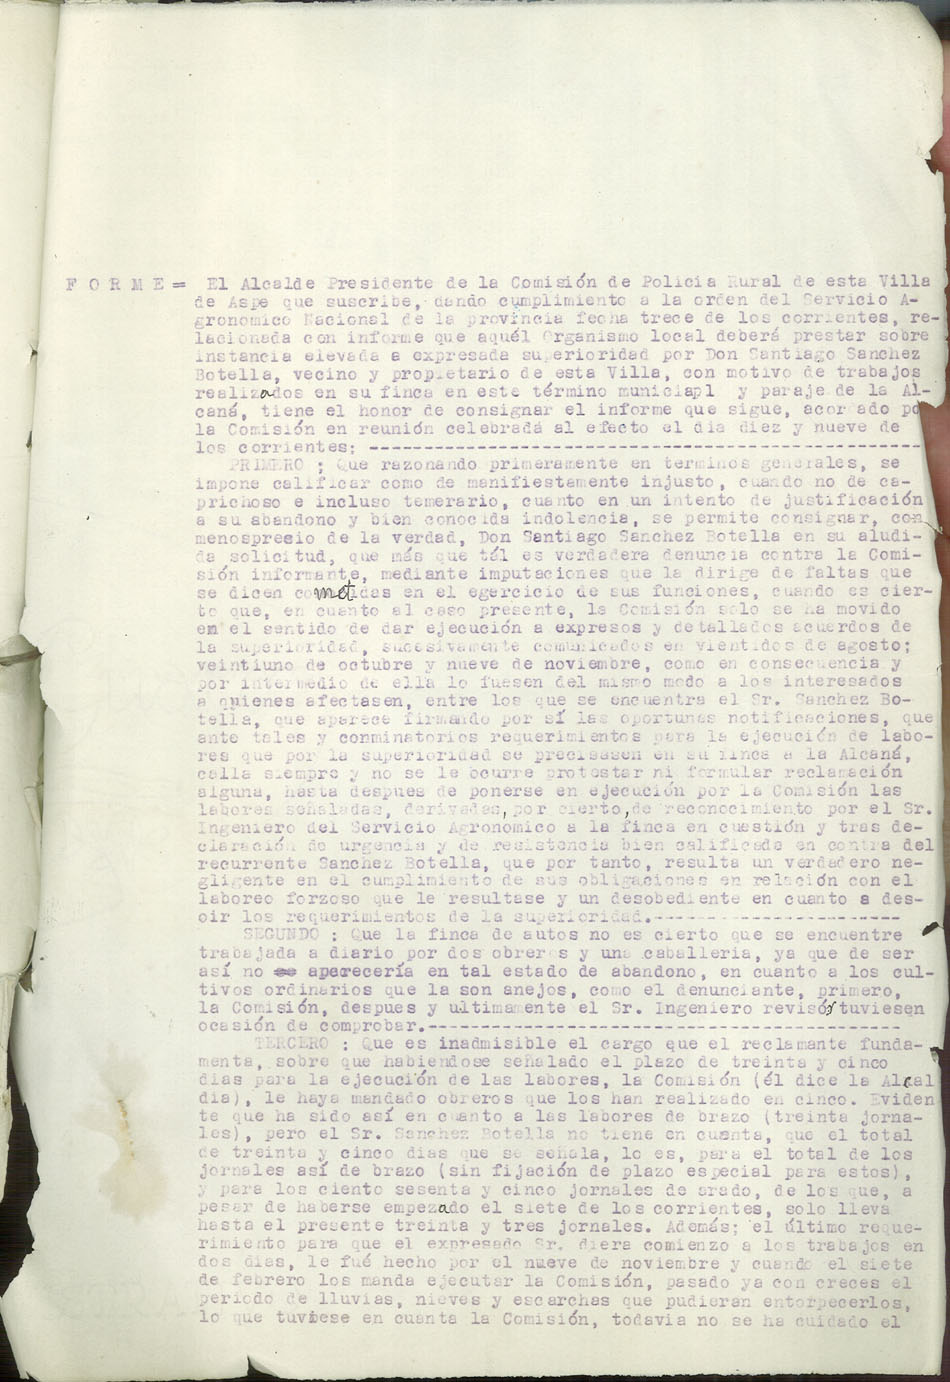 F O R M E = El Alcalde Presidente de la Comisión de Policia Rural de esta Villa
de Aspe que suscribe, dando cumplimiento a la orden del Servicio A-
gronomico Nacional de la provincia fecha trece de los corrientes, re-
lacionada con informe que aquél Organismo local deberá prestar sobre
instancia elevada a expresada superioridad por Don Santiago Sanchez
Botella, vecino y propietario de esta Villa, con motivo de trabajos
realizados en su finca en este término municiapl y paraje de la Al-
caná, tiene el honor de consignar el informe que sigue, acordado po
la Comisión en reunión celebrada al efecto el dia diez y nueve de
los corrientes: -----------------------------------------------------
PRIMERO ; Que razonando primeramente en terminos generales, se
impone calificar como de manifiestamente injusto, cuando no de ca-
prichoso e incluso temerario, cuanto en un intento de justificación
a su abandono y bien conocida indolencia, se permite consignar, con
menosprecio de la verdad, Don Santiago Sanchez Botella en su aludi-
da solicitud, que más que tál es verdadera denuncia contra la Comi-
sión informante, mediante imputaciones que la dirige de faltas que
se dicen cometidas en el egercicio de sus funciones, cuando es cier-
to que, en cuanto al caso presente, la Comisión solo se ha movido
en el sentido de dar ejecución a expresos y detallados acuerdos de
la superioridad, sucesivamente comunicados en vientidos de agosto;
veintiuno de octubre y nueve de noviembre, como en consecuencia y
por intermedio de ella lo fuesen del mismo modo a los interesados
a quienes afectasen, entre los que se encuentra el Sr. Sanchez Bo-
tella, que aparece firmando por sí las oportunas notificaciones, que
ante tales y conminatorios requerimientos para la ejecución de labo-
res que por la superioridad se precisasen en su finca a la Alcaná,
calla siempre y no se le ocurre protestar ni formular reclamación
alguna, hasta despues de ponerse en ejecución por la Comisión las
labores señaladas, derivadas, por cierto, de reconocimiento por el Sr.
Ingeniero del Servicio Agronomico a la finca en cuestión y tras de-
claración de urgencia y de resistencia bien calificada en contra del
recurrente Sanchez Botella, que por tanto, resulta un verdadero ne-
gligente en el cumplimiento de sus obligaciones en relación con el
laboreo forzoso que le resultase y un desobediente en cuanto a des-
oir los requerimientos de la superioridad.----------------------
SEGUNDO : Que la finca de autos no es cierto que se encuentre
trabajada a diario por dos obreros y una caballeria, ya que de ser
así no aparecería en tal estado de abandono, en cuanto a los cul-
tivos ordinarios que la son anejos, como el denunciante, primero,
la Comisión, despues y ultimamente el Sr. Ingeniero revisór tuviesen
ocasión de comprobar.--------------------------------------------
TERCERO : Que es inadmisible el cargo que el reclamante funda-
menta, sobre que habiendose señalado el plazo de treinta y cinco
dias para la ejecución de las labores, la Comisión (él dice la Alcal
dia), le haya mandado obreros que los han realizado en cinco. Eviden
te que ha sido así en cuanto a las labores de brazo (treinta jorna-
les), pero el Sr. Sanchez Botella no tiene en cuenta, que el total
de treinta y cinco dias que se señala, lo es, para el total de los
jornales así de brazo (sin fijación de plazo especial para estos),
y para los ciento sesenta y cinco jornales de arado, de los que, a
pesar de haberse empezado el siete de los corrientes, solo lleva
hasta el presente treinta y tres jornales. Además; el último reque-
rimiento para que el expresado Sr. diera comienzo a los trabajos en
dos dias, le fué hecho por el nueve de noviembre y cuando el siete
de febrero los manda ejecutar la Comisión, pasado ya con creces el
periodo de lluvias, nieves y escarchas que pudieran entorpecerlos,
lo que tuviese en cuenta la Comisión, todavia no se ha cuidado el